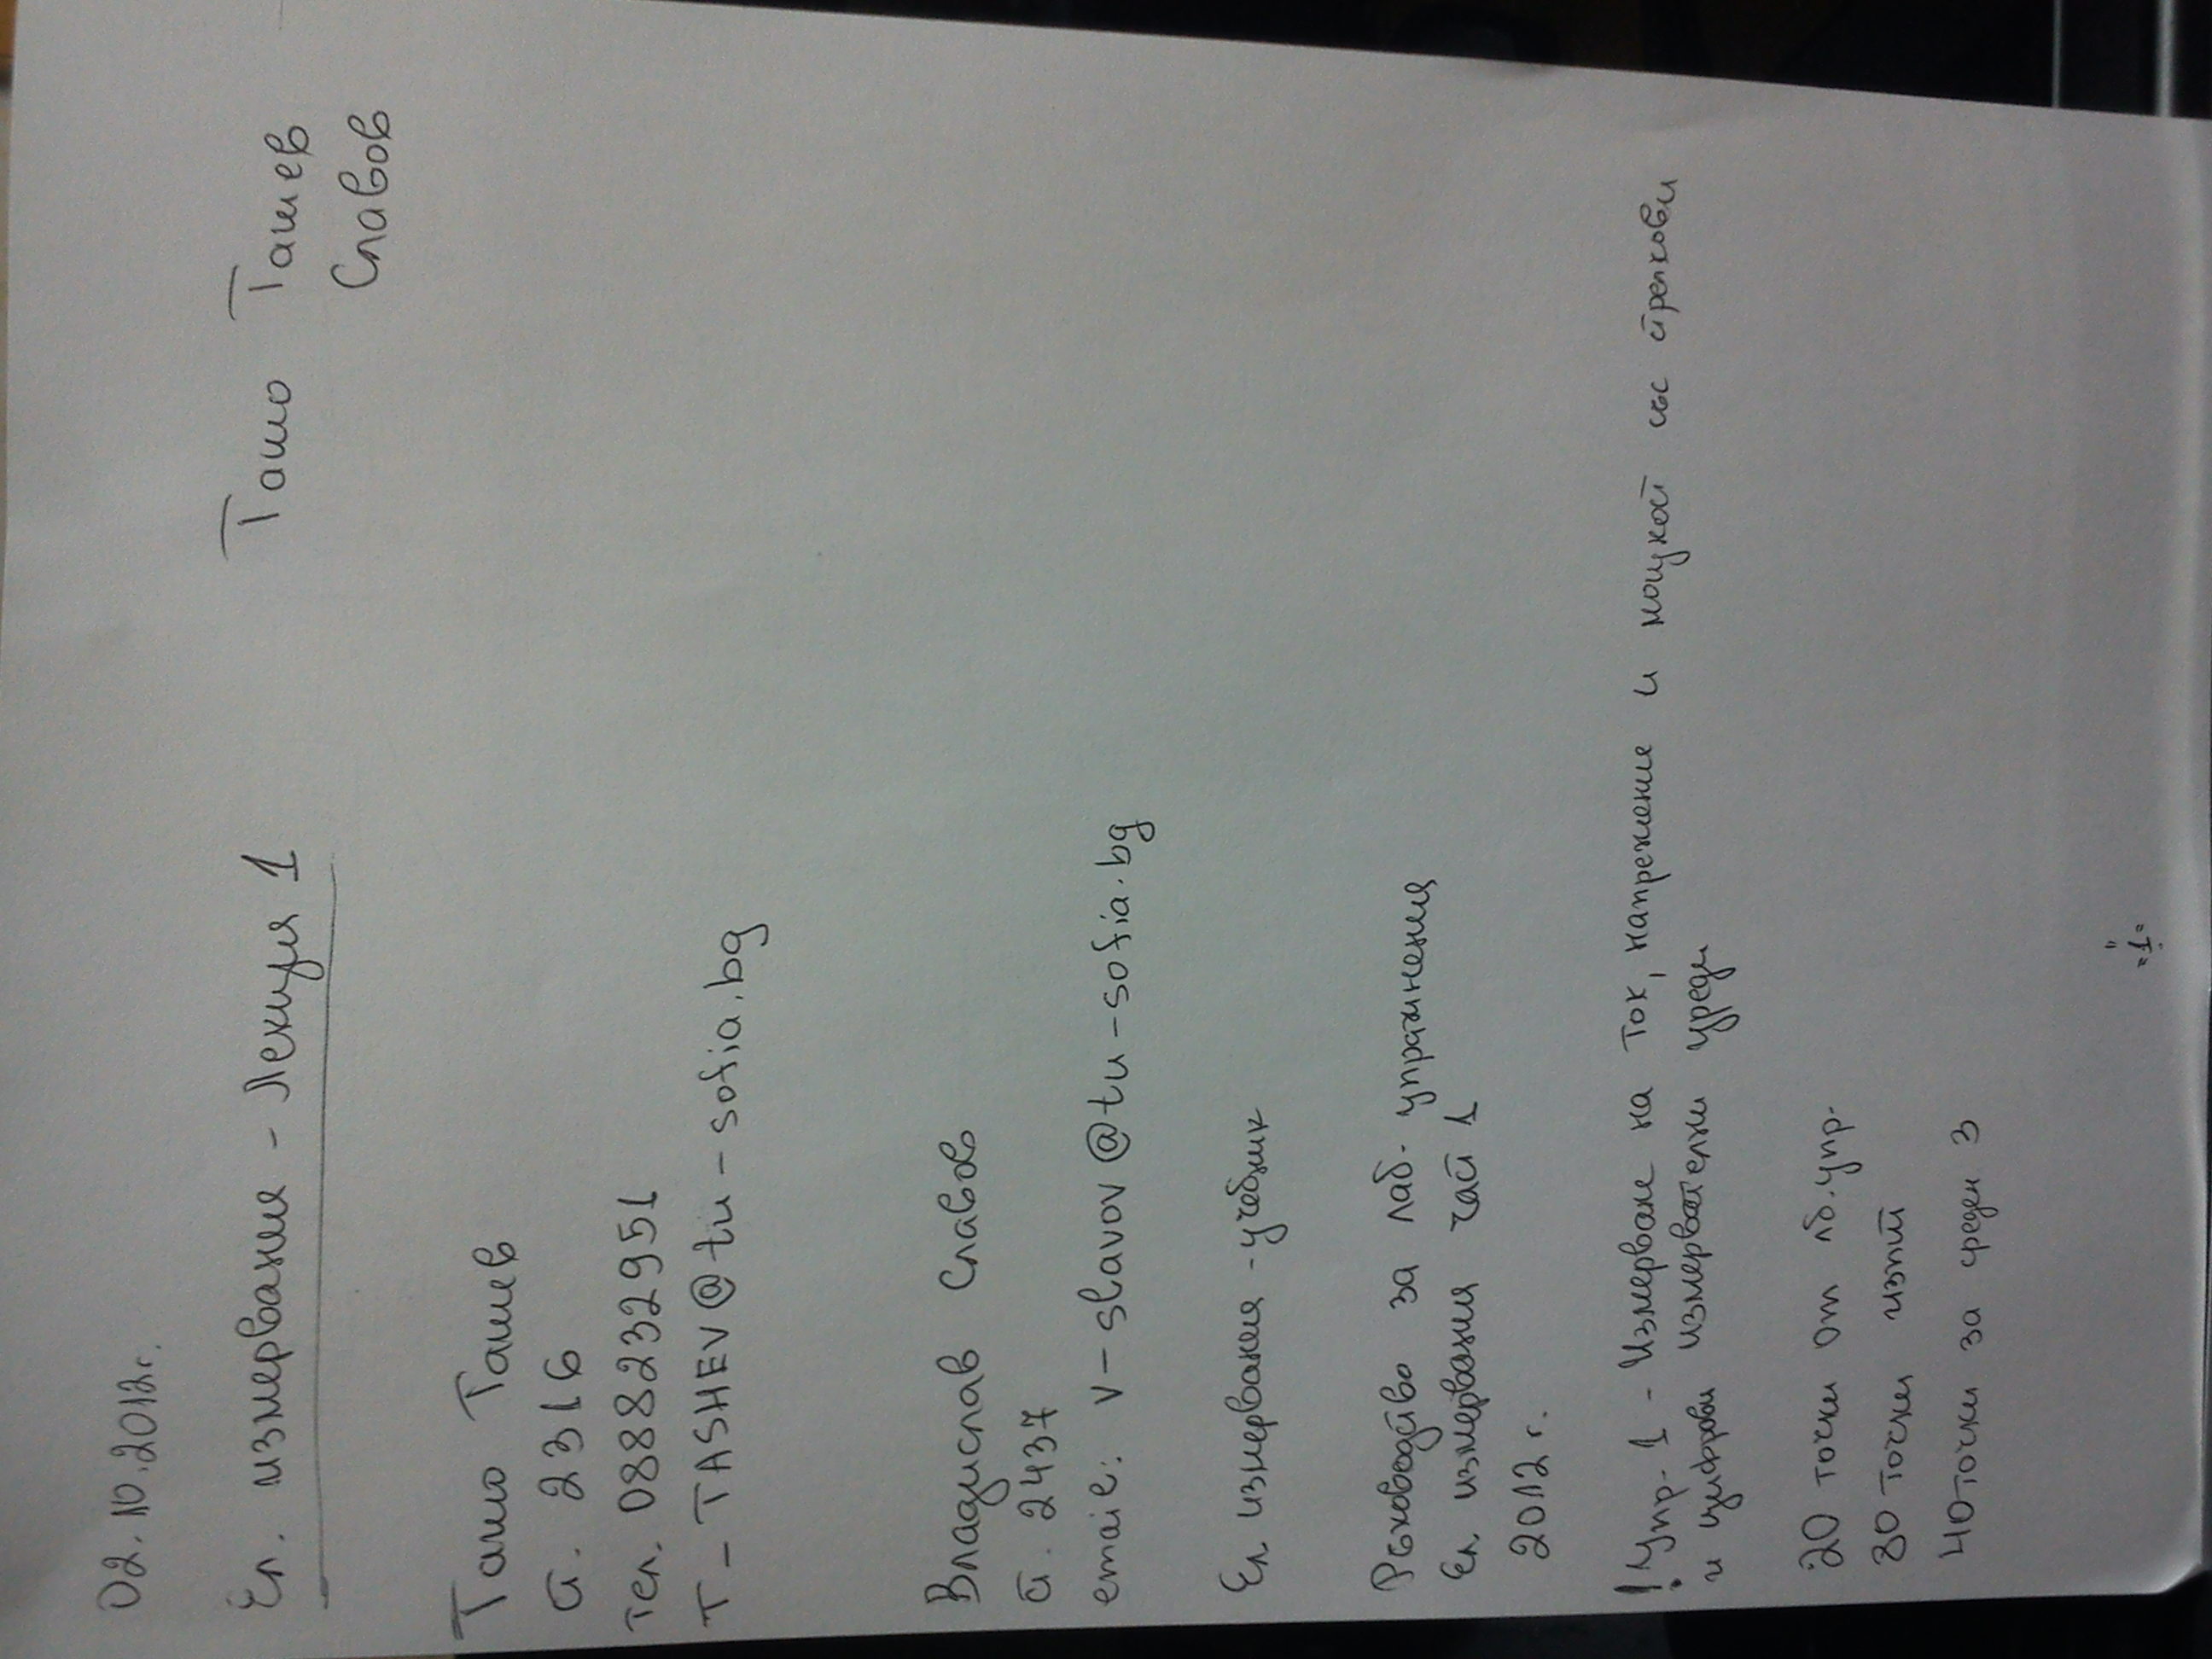 02.10.2012г.
Ел. измервания - Лекция 1
Ташо Ташев
Славов
Ташо Ташев
ст. 2316
тел. 0888232951
T_TASHEV@tu-sofia.bg
Владислав Славов
ст. 2437
email: v-slavov@tu-sofia.bg
Ел. измервания - учебник
Ръководство за лаб. упражнения
Ел. измервания част 1
2012 г.
! Упр. 1 - Измерване на ток, напрежение и мощност със стрелкови
и цифрови измервателни уреди
20 точки от лб. упр.
80 точки изпит
40 точки за среден 3
"1"